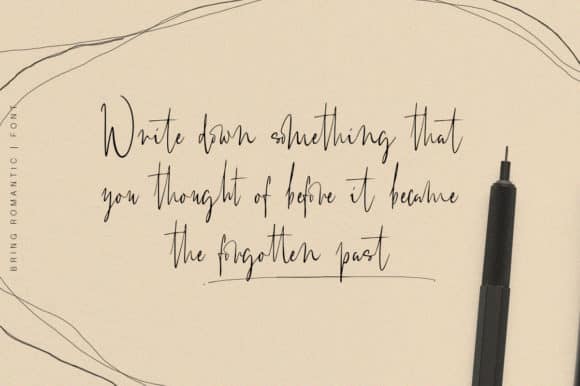 Write down something that
you thought of before it became
the forgotten past
BRING ROMANTIC | FONT